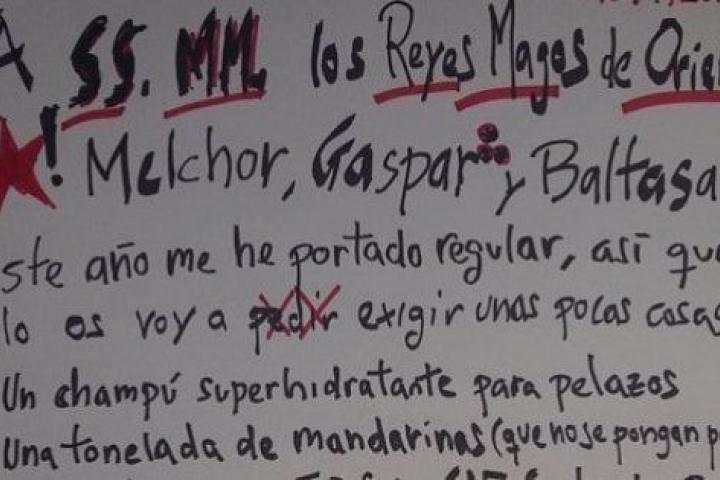 A SS. MM. los Reyes Magos de Orien
¡! Melchor, Gaspar y Baltasa
ste año me he portado regular, así que
lo os voy a pedir exigir unas pocas cosas
Un champú superhidratante para pelazos
Una tonelada de mandarinas (que no se pongan p